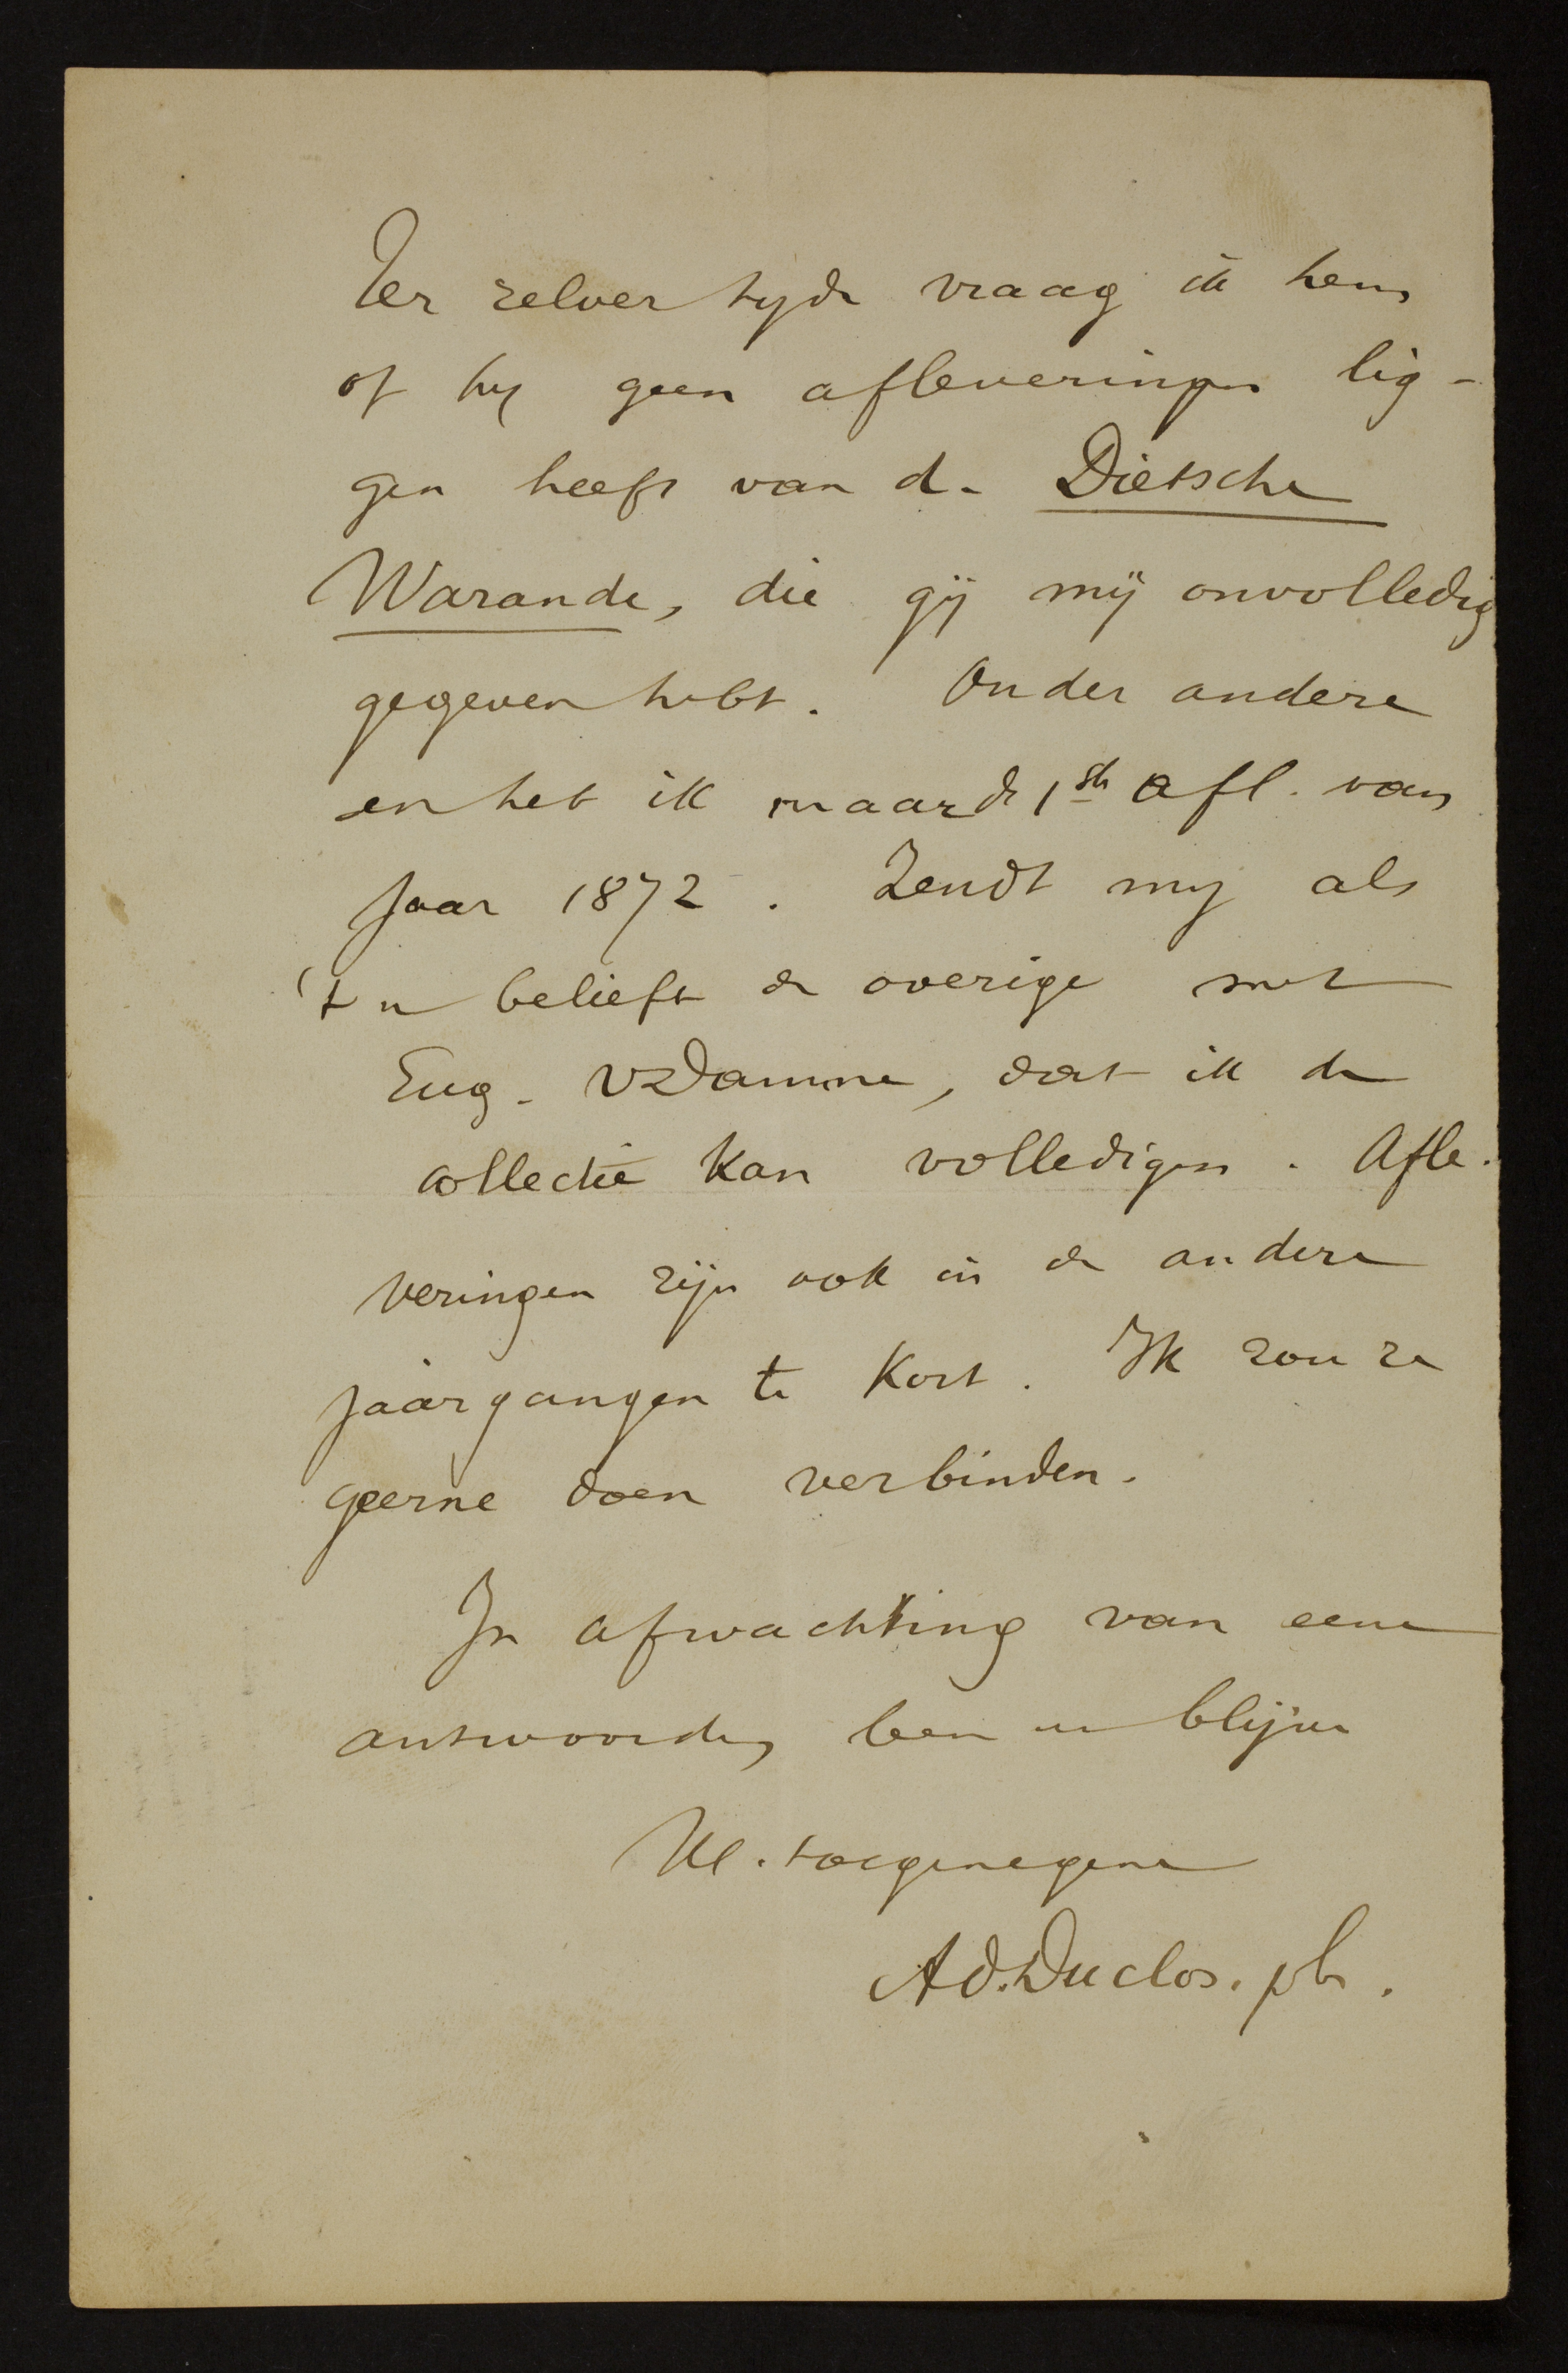 Ter zelver tyde vraag ik hem
of hy geen afleveringen lig-
gen heeft van de Dietsche
Warande, die gij mij onvolledig
gegeven hebt. Onder andere
en heb ik maar de 1ste afl. van
Jaar 1872. Zendt my als
't u belieft de overige met
Eug. VDamme, dat ik de
collectie kan volledigen. Afle-
veringen zijn ook in de andere
jaargangen te kort. Ik zou ze
geerne doen verbinden.
In afwachting van eene
antwoorde, ben en blijve
Ul. toegenegene
Ad. Duclos. pb.